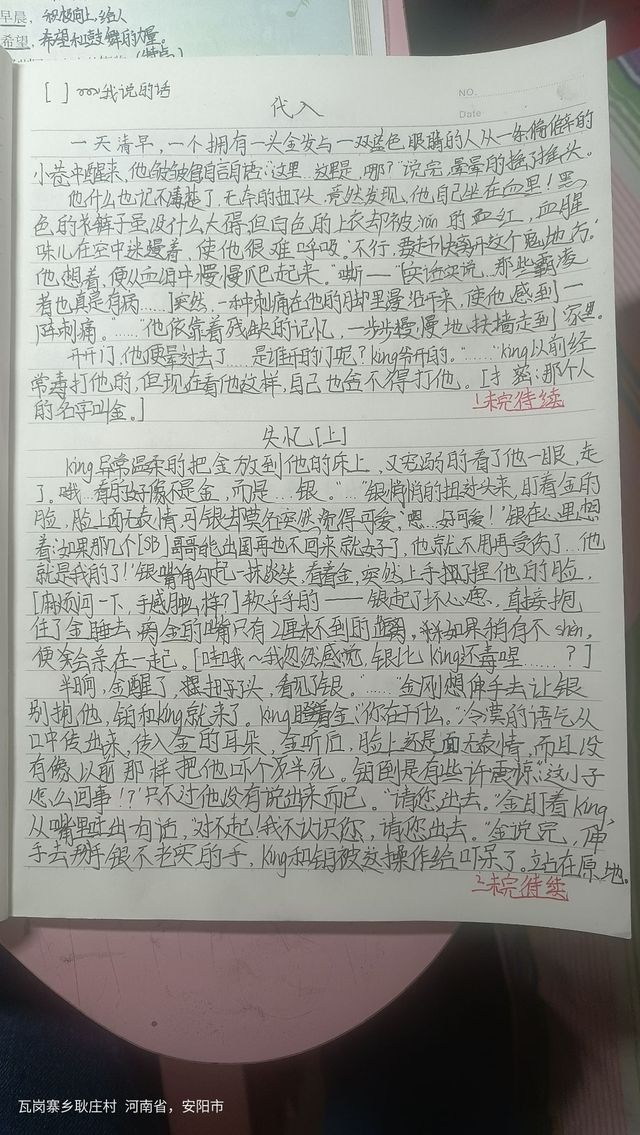 早晨，积极向上，给人
希望，希望和鼓舞的力量。
[ ] 〰我说的话
NO.
代入
Date
一天清早，一个拥有一头金发与一双蓝色眼睛的人从一条偏僻的
小巷中醒来，他皱皱眉自言自语：“这里…这里是，哪？”说完，晕晕的摇了摇头。
他什么也记不清楚了，无奈的扭头，竟然发现，他自己坐在血里！黑
色的长裤子虽没什么大碍，但白色的上衣却被rǎn的血红，血腥
味儿在空中迷漫着，使他很难呼吸。“不行，要赶快离开这个鬼地方。”
他想着，便从血泊中慢慢爬起来。“嘶——”[实话实说，那些霸凌
者也真是有病……]突然，一种刺痛在他的脚里漫延开来，使他感到一
阵刺痛。“……”他依靠着残缺的记忆，一步步慢慢地扶墙走到家里。
开开门，他便晕过去了……是谁开的门呢？king给开的。“……”king以前经
常毒打他的，但现在看他这样，自己也舍不得打他。[才密：那个人
的名字叫金。]
1未完待续
失忆[上]
king异常温柔的把金放到他的床上，又宠溺的看了他一眼，走
了。哦，看的好像不是金，而是…银。“…”银悄悄的扭过头来，盯着金的
脸，脸上面无表情，可银却莫名突然觉得可爱，‘嗯…好可爱！’银在心里想
着：‘如果那几个[SB]哥哥能出国再也不回来就好了，他就不用再受伤了…他
就是我的了！’银嘴角勾起一抹淡笑，看着金，突然上手捏了捏他的脸，
[麻烦问一下，手感肿么样？]软乎乎的——银起了坏心思，直接抱
住了金睡去，离金的嘴只有2厘米不到的距离，如果稍有不shèn，
便会亲在一起。[哇哦~我忽然感觉，银比king还毒哩……？]
半晌，金醒了，扭扭头，看见了银。“……”金刚想伸手去让银
别抱他，铂和king就来了。king瞪着金：“你在干什么。”冷漠的语气从
口中传出来，传入金的耳朵，金听后，脸上还是面无表情，而且没
有像以前那样把他吓个够半死。铂倒是有些许震惊：‘这小子
怎么回事！？’只不过他没有说出来而已。“请您出去。”金盯着king，
从嘴里吐出一句话，“对不起！我不认识你，请您出去。”金说完，伸
手去掰银不老实的手，king和铂被这操作给吓呆了。立站在原地。
2未完待续
瓦岗寨乡耿庄村 河南省，安阳市